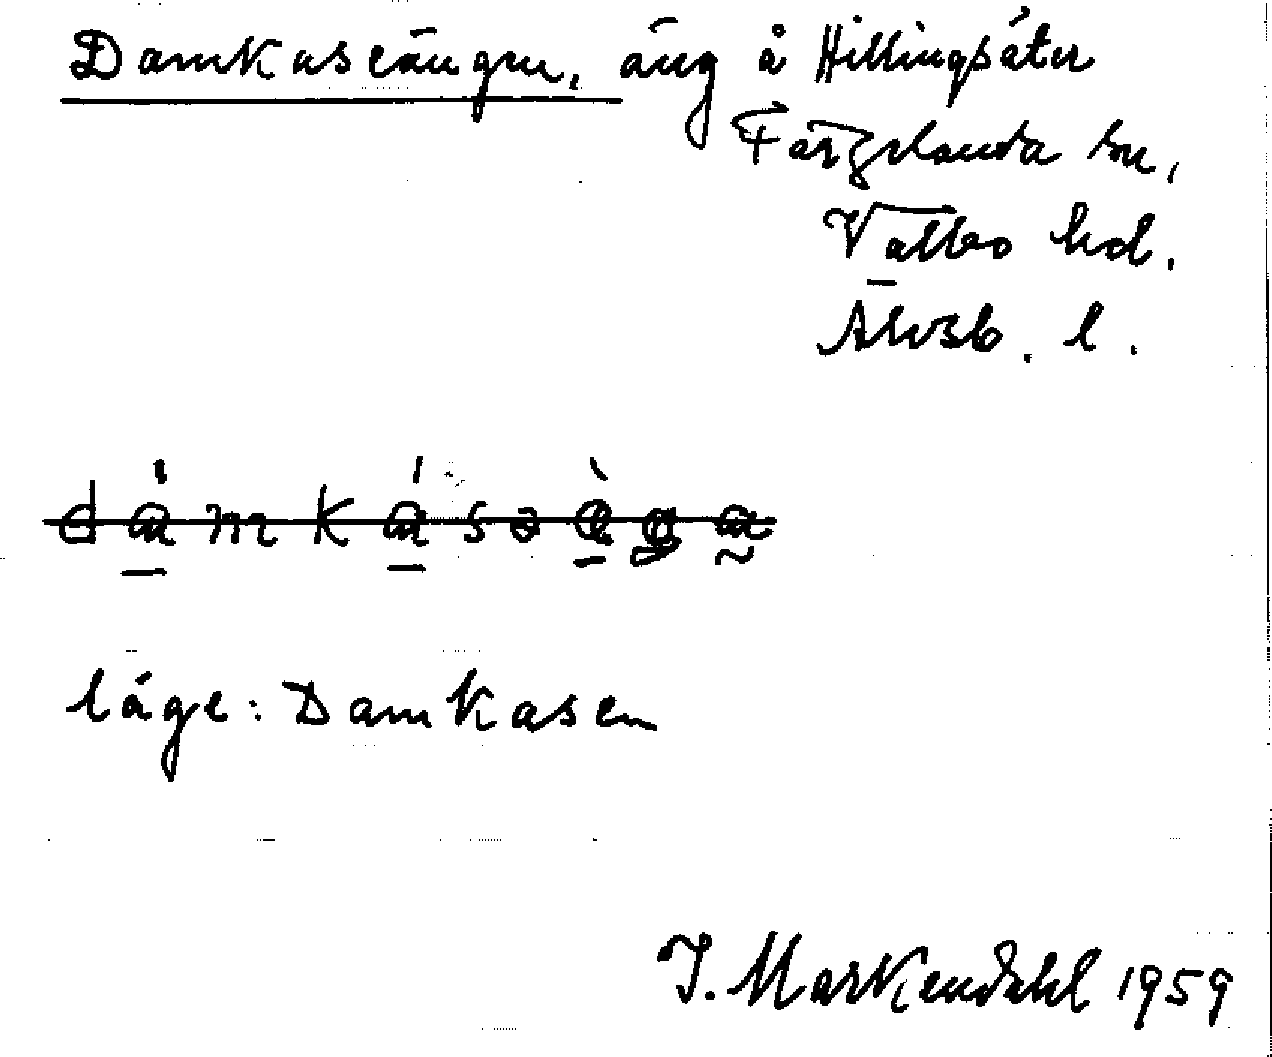 Damkaseängen, äng å Hillingsäter
Färgelanda sn,
Valbo hd.
Älvsb. l.
läge: Damkasen
J. Markendahl 1959